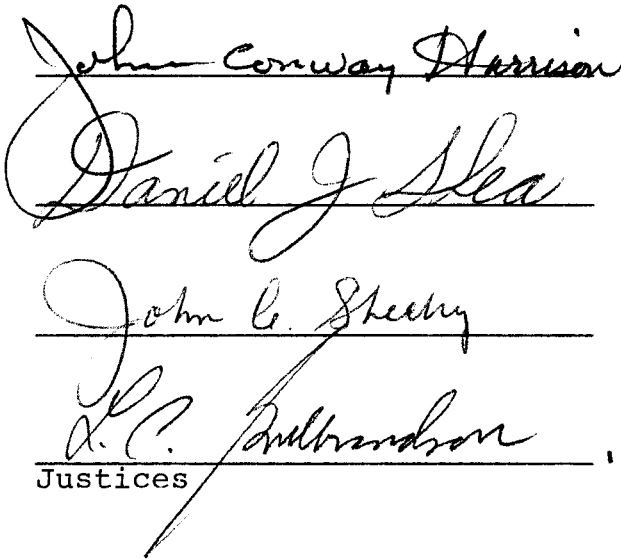 John Conway Harrison
Daniel J Shea
John C. Sheehy
L. C. Gulbrandson
Justices